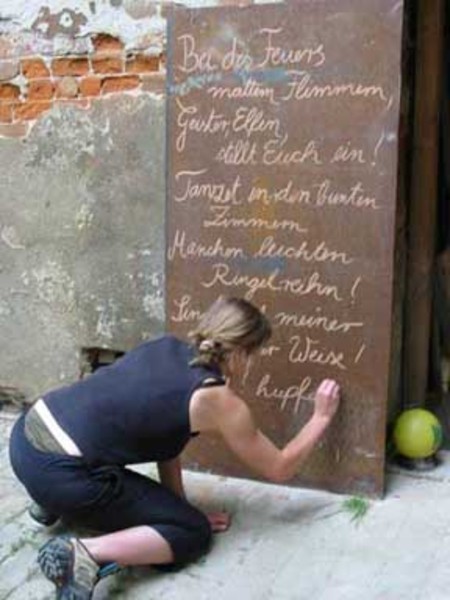 Bei des Feuers
mattem Flimmern,
Geister, Elfen,
stellt Euch ein!
Tanzet in den bunten
Zimmern
Manchen leichten
Ringelreihn!
meiner
Weise!
hupf